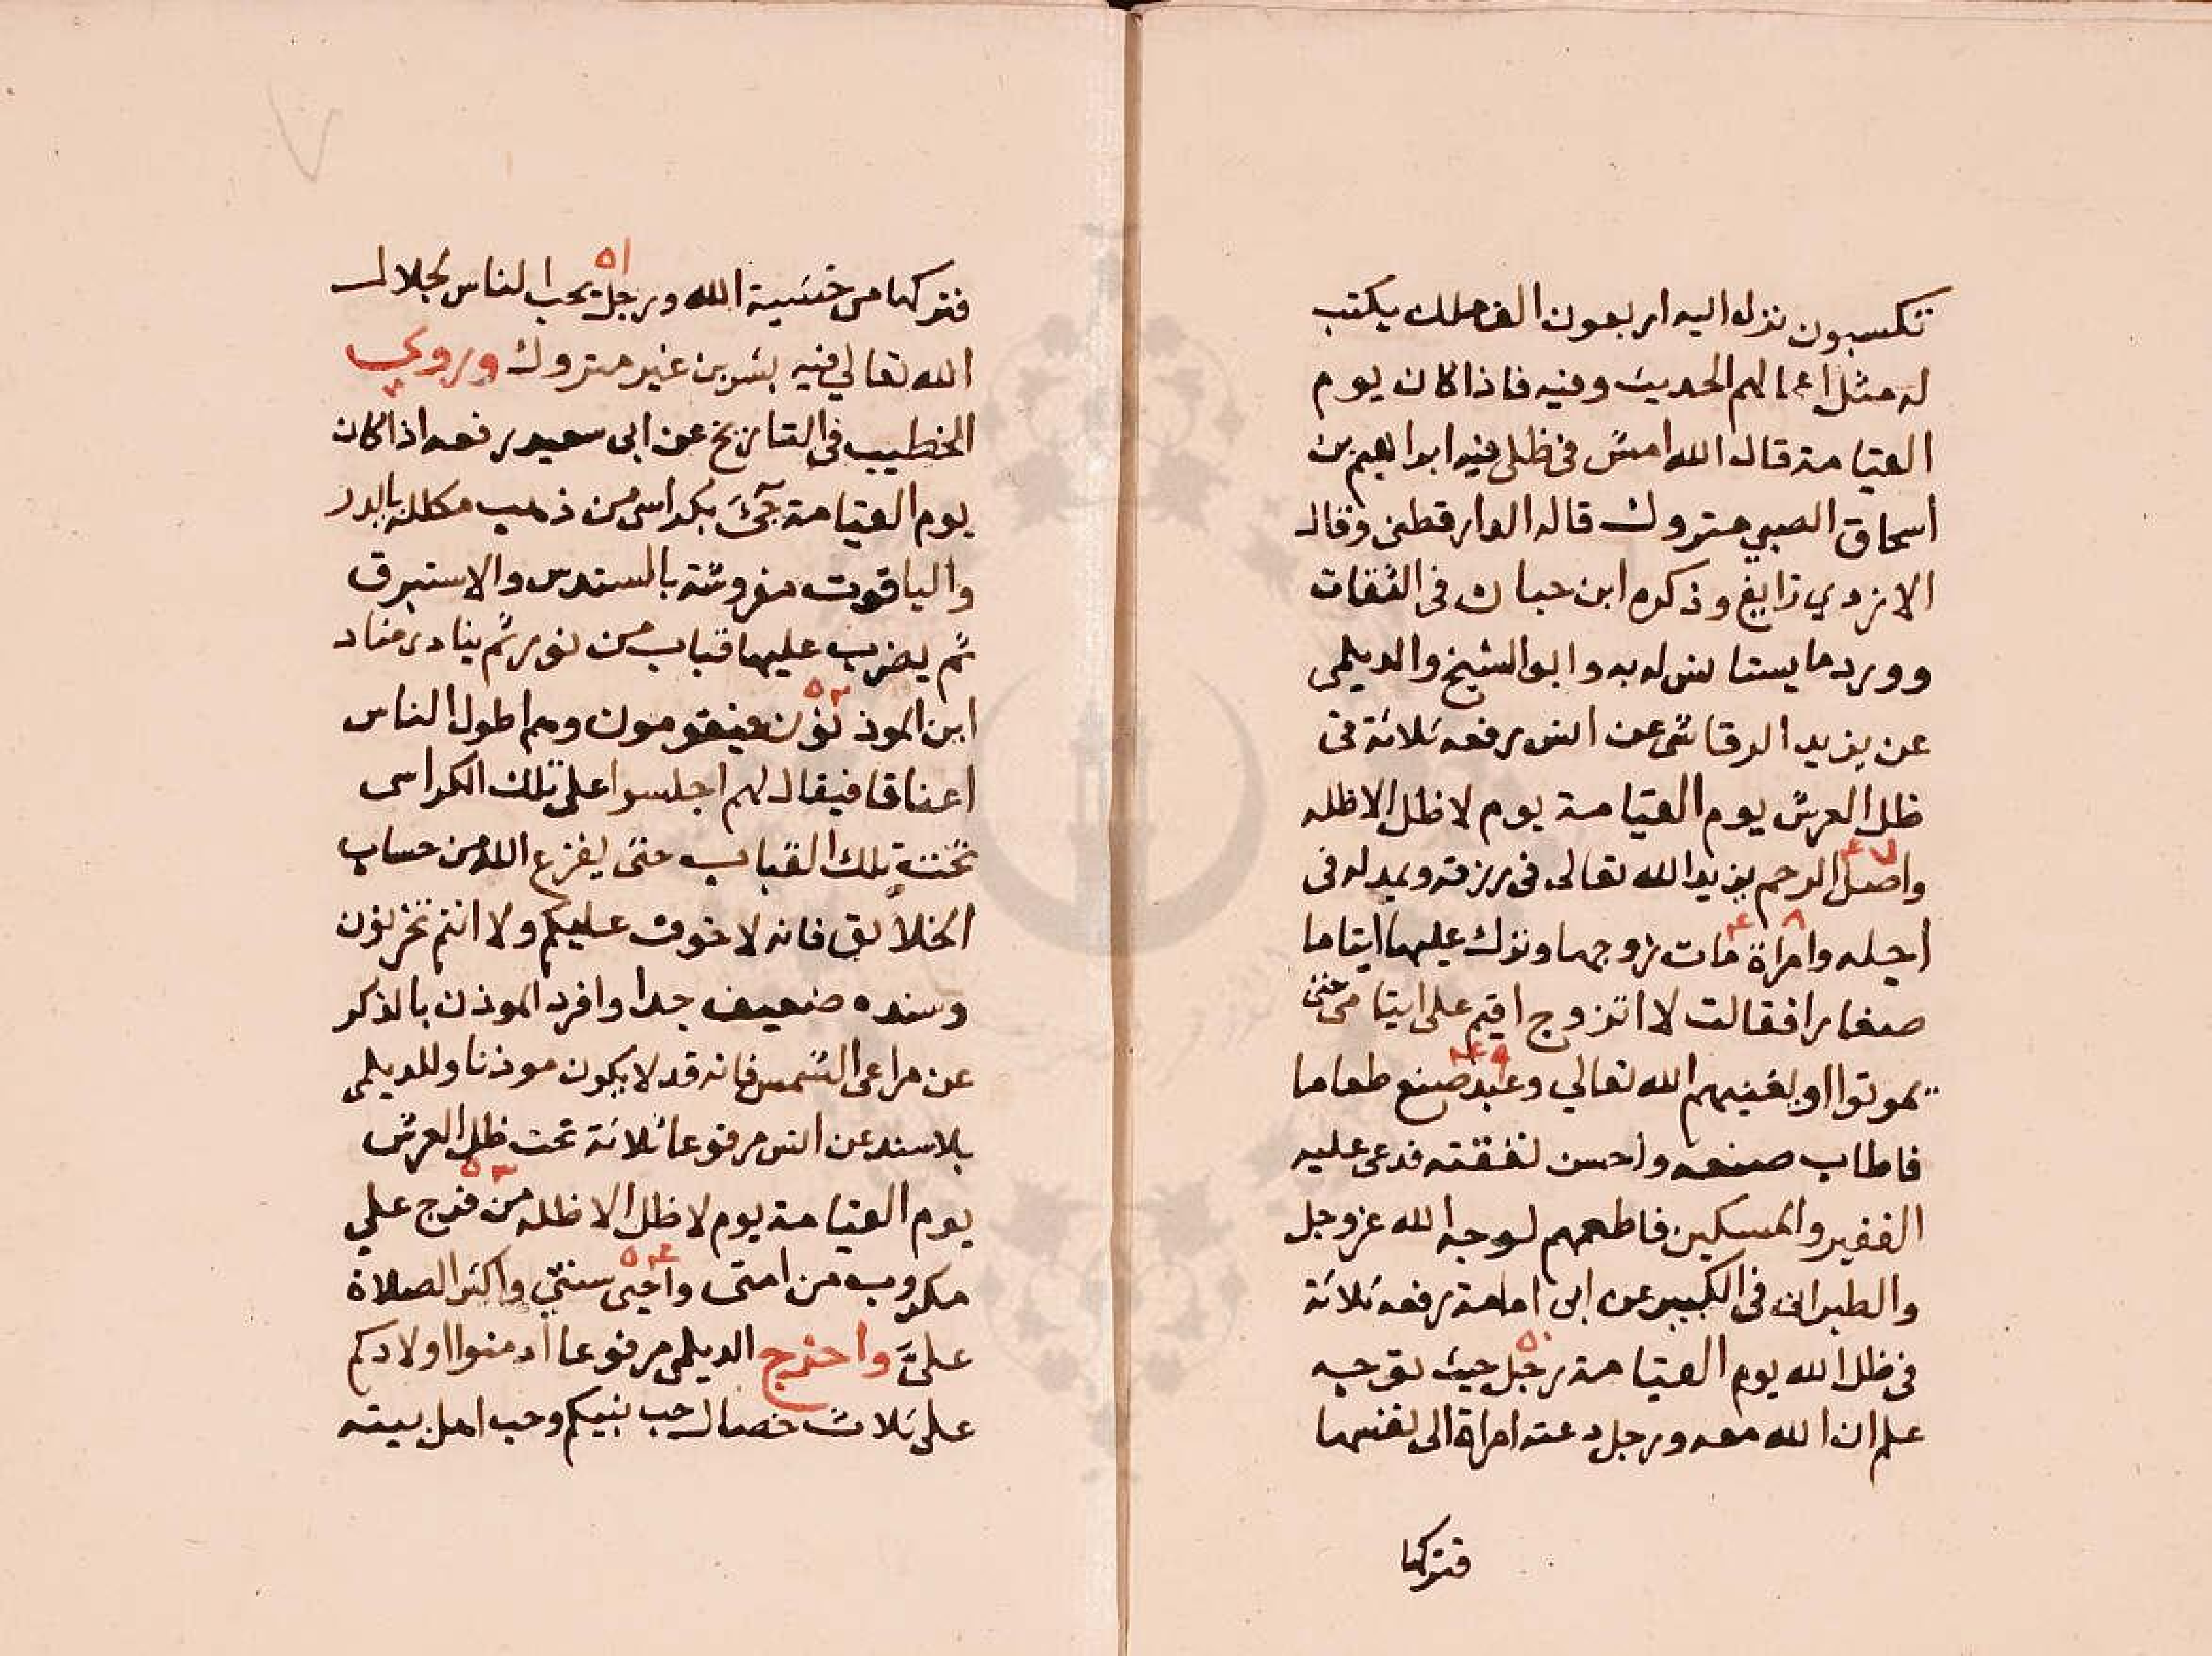 تكسبون نزل اليه اربعون الف ملك يكتب
له مثل اعمالهم الحديث وفيه فاذا كان يوم
القيامة قال الله امش في ظلي فيه ابراهيم بن
اسحاق الصبي متروك قاله الدارقطني وقال
الازدي زايغ وذكره ابن حبان في الثقات
وورد ما يستانس له به وابو الشيخ والديلمي
عن يزيد الرقاشي عن انس رفعه ثلاثة في
ظل العرش يوم القيامة يوم لا ظل الا ظله
٤٧
واصل الرحم يزيد الله تعالى في رزقه ويمد له في
٤٨
اجله وامراة مات زوجها وترك عليها ايتاما
صغارا فقالت لا اتزوج اقيم على ايتامي حتى
٤٩
يموتوا او يغنيهم الله تعالي وعبد صنع طعاما
فاطاب صنعه واحسن نفقته فدعى عليه
الفقير والمسكين فاطعمهم لوجه الله عز وجل
والطبراني في الكبير عن ابي امامة رفعه ثلاثة
٥٠
في ظل الله يوم القيامة رجل حيث توجه
علم ان الله معه ورجل دعته امراة الى نفسها
فتركها
٧
٥١
فتركها من خشية الله ورجل يحب الناس لجلال
الله تعالي فيه بشر بن غير متروك وروي
الخطيب في التاريخ عن ابي سعيد رفعه اذا كان
يوم القيامة جئ بكراسي من ذهب مكللة بالدر
والياقوت مفروشة بالسندس والاستبرق
ثم يضرب عليها قباب من نور ثم ينادى مناد
٥٢
اين الموذنون فيقومون وهم اطول الناس
اعناقا فيقال لهم اجلسوا على تلك الكراسي
تحت تلك القباب حتى يفزع الله من حساب
الخلائق فانه لا خوف عليكم ولا انتم تحزنون
وسنده ضعيف جدا وافرد الموذن بالذكر
عن مراعي الشمس فانه قد لا يكون موذنا وللديلمي
بلا سند عن انس مرفوعا ثلاثة تحت ظل العرش
٥٣
يوم القيامة يوم لا ظل الا ظله من فرج علي
٥٤
مكروب من امتى واحيى سنتي واكثر الصلاة
عليَّ واخرج الديلمي مرفوعا ادمنوا اولادكم
على ثلاث خصال حب نبيكم وحب اهل بيته